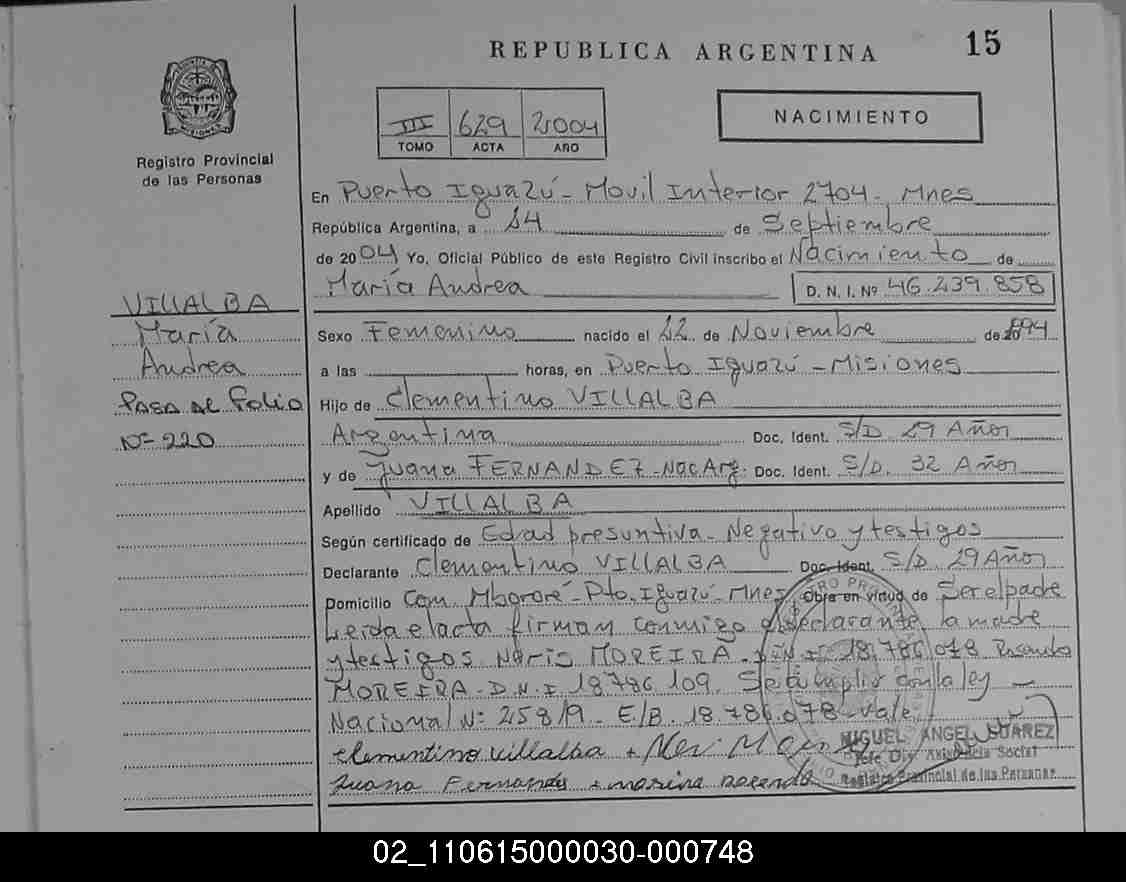 REPUBLICA ARGENTINA 15
Registro Provincial
de las Personas
III 629 2004
TOMO ACTA AÑO
NACIMIENTO
En Puerto Iguazú - Movil Interior 2704 - Mnes
República Argentina, a 14 de Septiembre
de 2004 Yo, Oficial Público de este Registro Civil inscribo el Nacimiento de
María Andrea D. N. I. Nº 46.239.858
VILLALBA
María
Andrea
Pasa al Folio
Nº 220
Sexo Femenino nacido el de Noviembre de
a las horas, en Puerto Iguazú - Misiones
Hijo de Clementino VILLALBA
Argentina Doc. Ident. S/D 29 Años
y de Juana FERNANDEZ - Nac Arg. Doc. Ident. S/D. 32 Años
Apellido VILLALBA
Según certificado de Edad presuntiva - Negativo y testigos
Declarante Clementino VILLALBA Doc. Ident. S/D. 29 Años
Domicilio Com. Mbororé - Pto. Iguazú - Mnes. Obra en virtud de Ser el padre
Leida el acta firman conmigo el declarante la madre
y testigos MOREIRA. D.N.I. 18.786.078 Rosendo
MOREIRA - D.N.I. 18.786.109. Se cumplio con la ley
Nacional Nº 25819 - E/B. 18.786.078 - Vale.
clementino villalba +
MIGUEL ANGEL SUAREZ
Jefe Div. Asistencia Social
Registro Provincial de las Personas
Juana Fernandes +
02_110615000030-000748